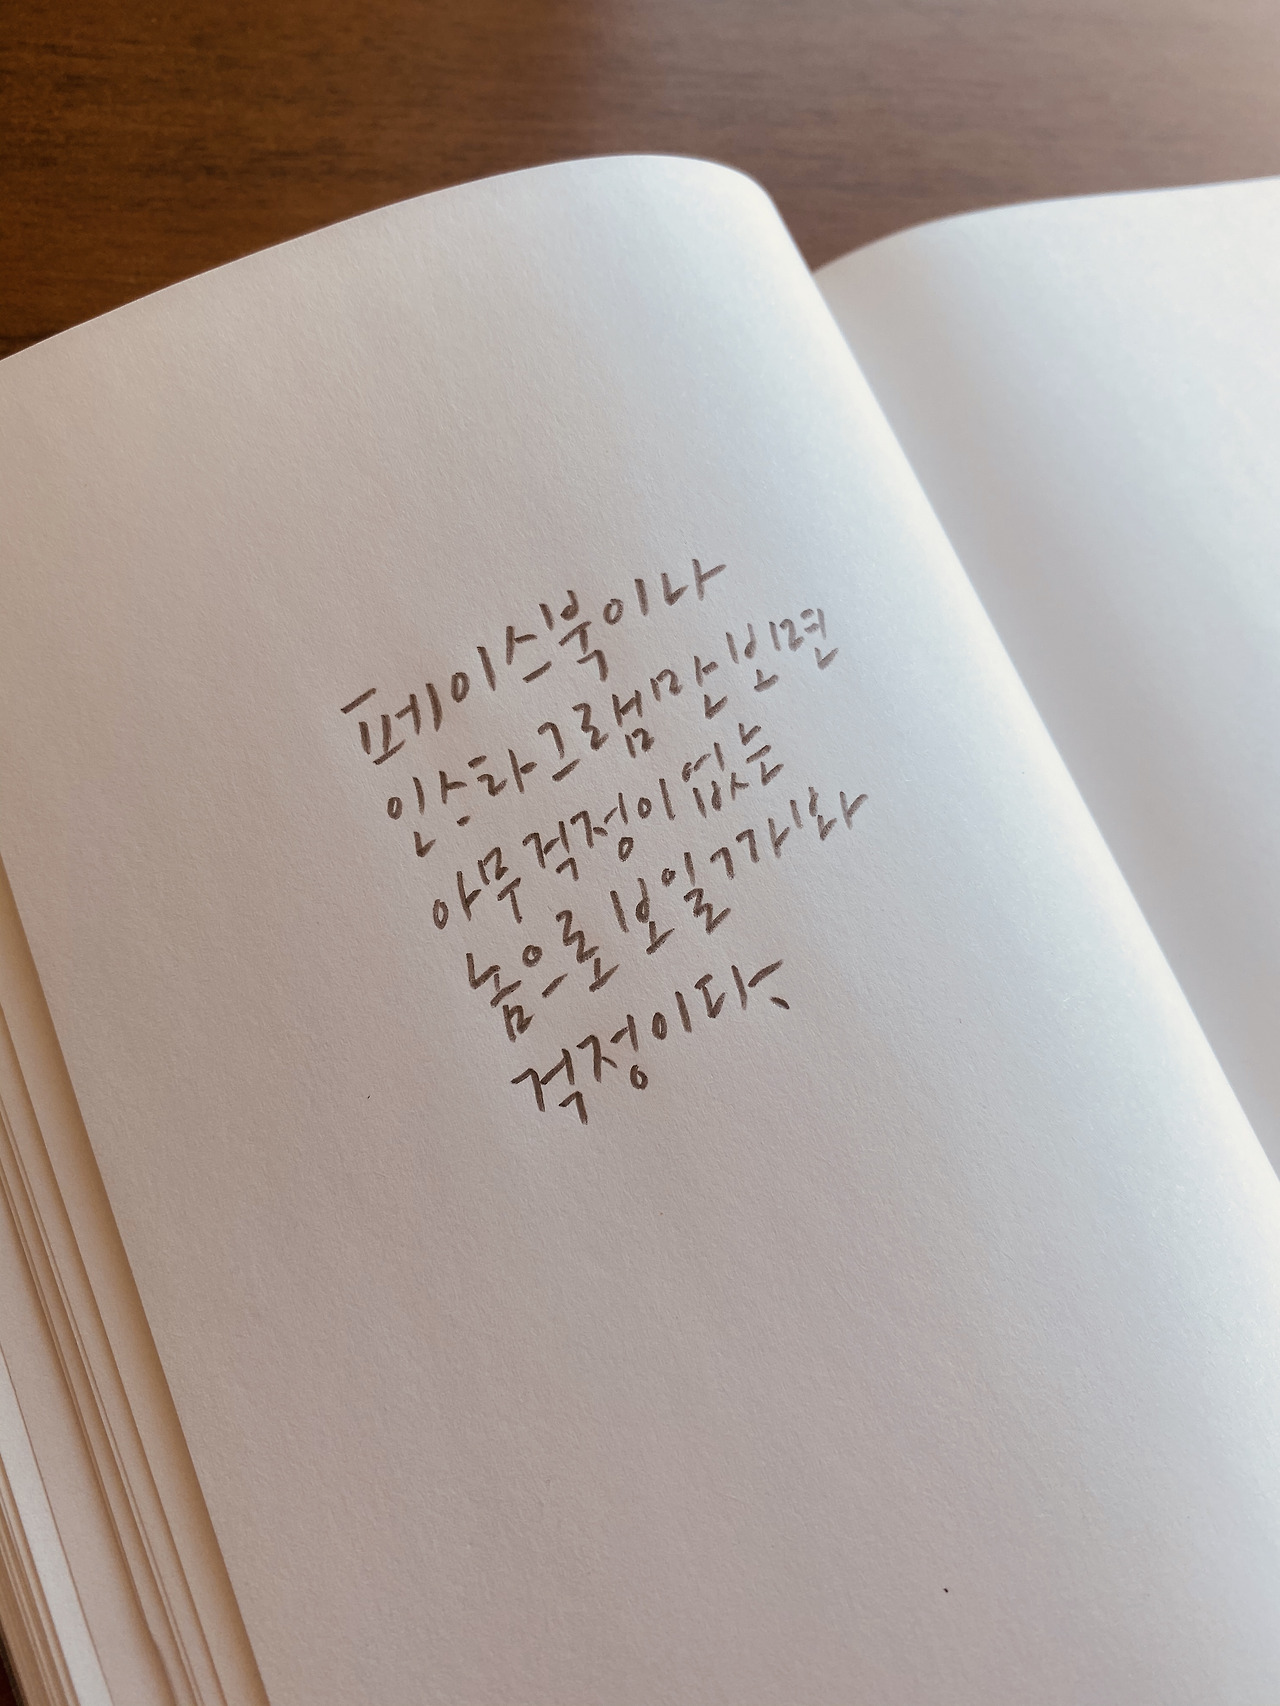 페이스북이나
인스타그램만 보면
아무 걱정이 없는
놈으로 보일 가봐
걱정이다.